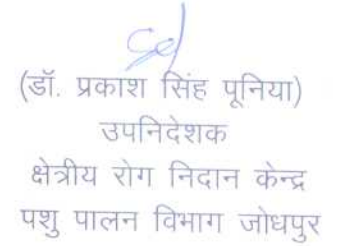 (डॉ. प्रकाश सिंह पूनिया)
उपनिदेशक
क्षेत्रीय रोग निदान केन्द्र
पशु पालन विभाग जोधपुर